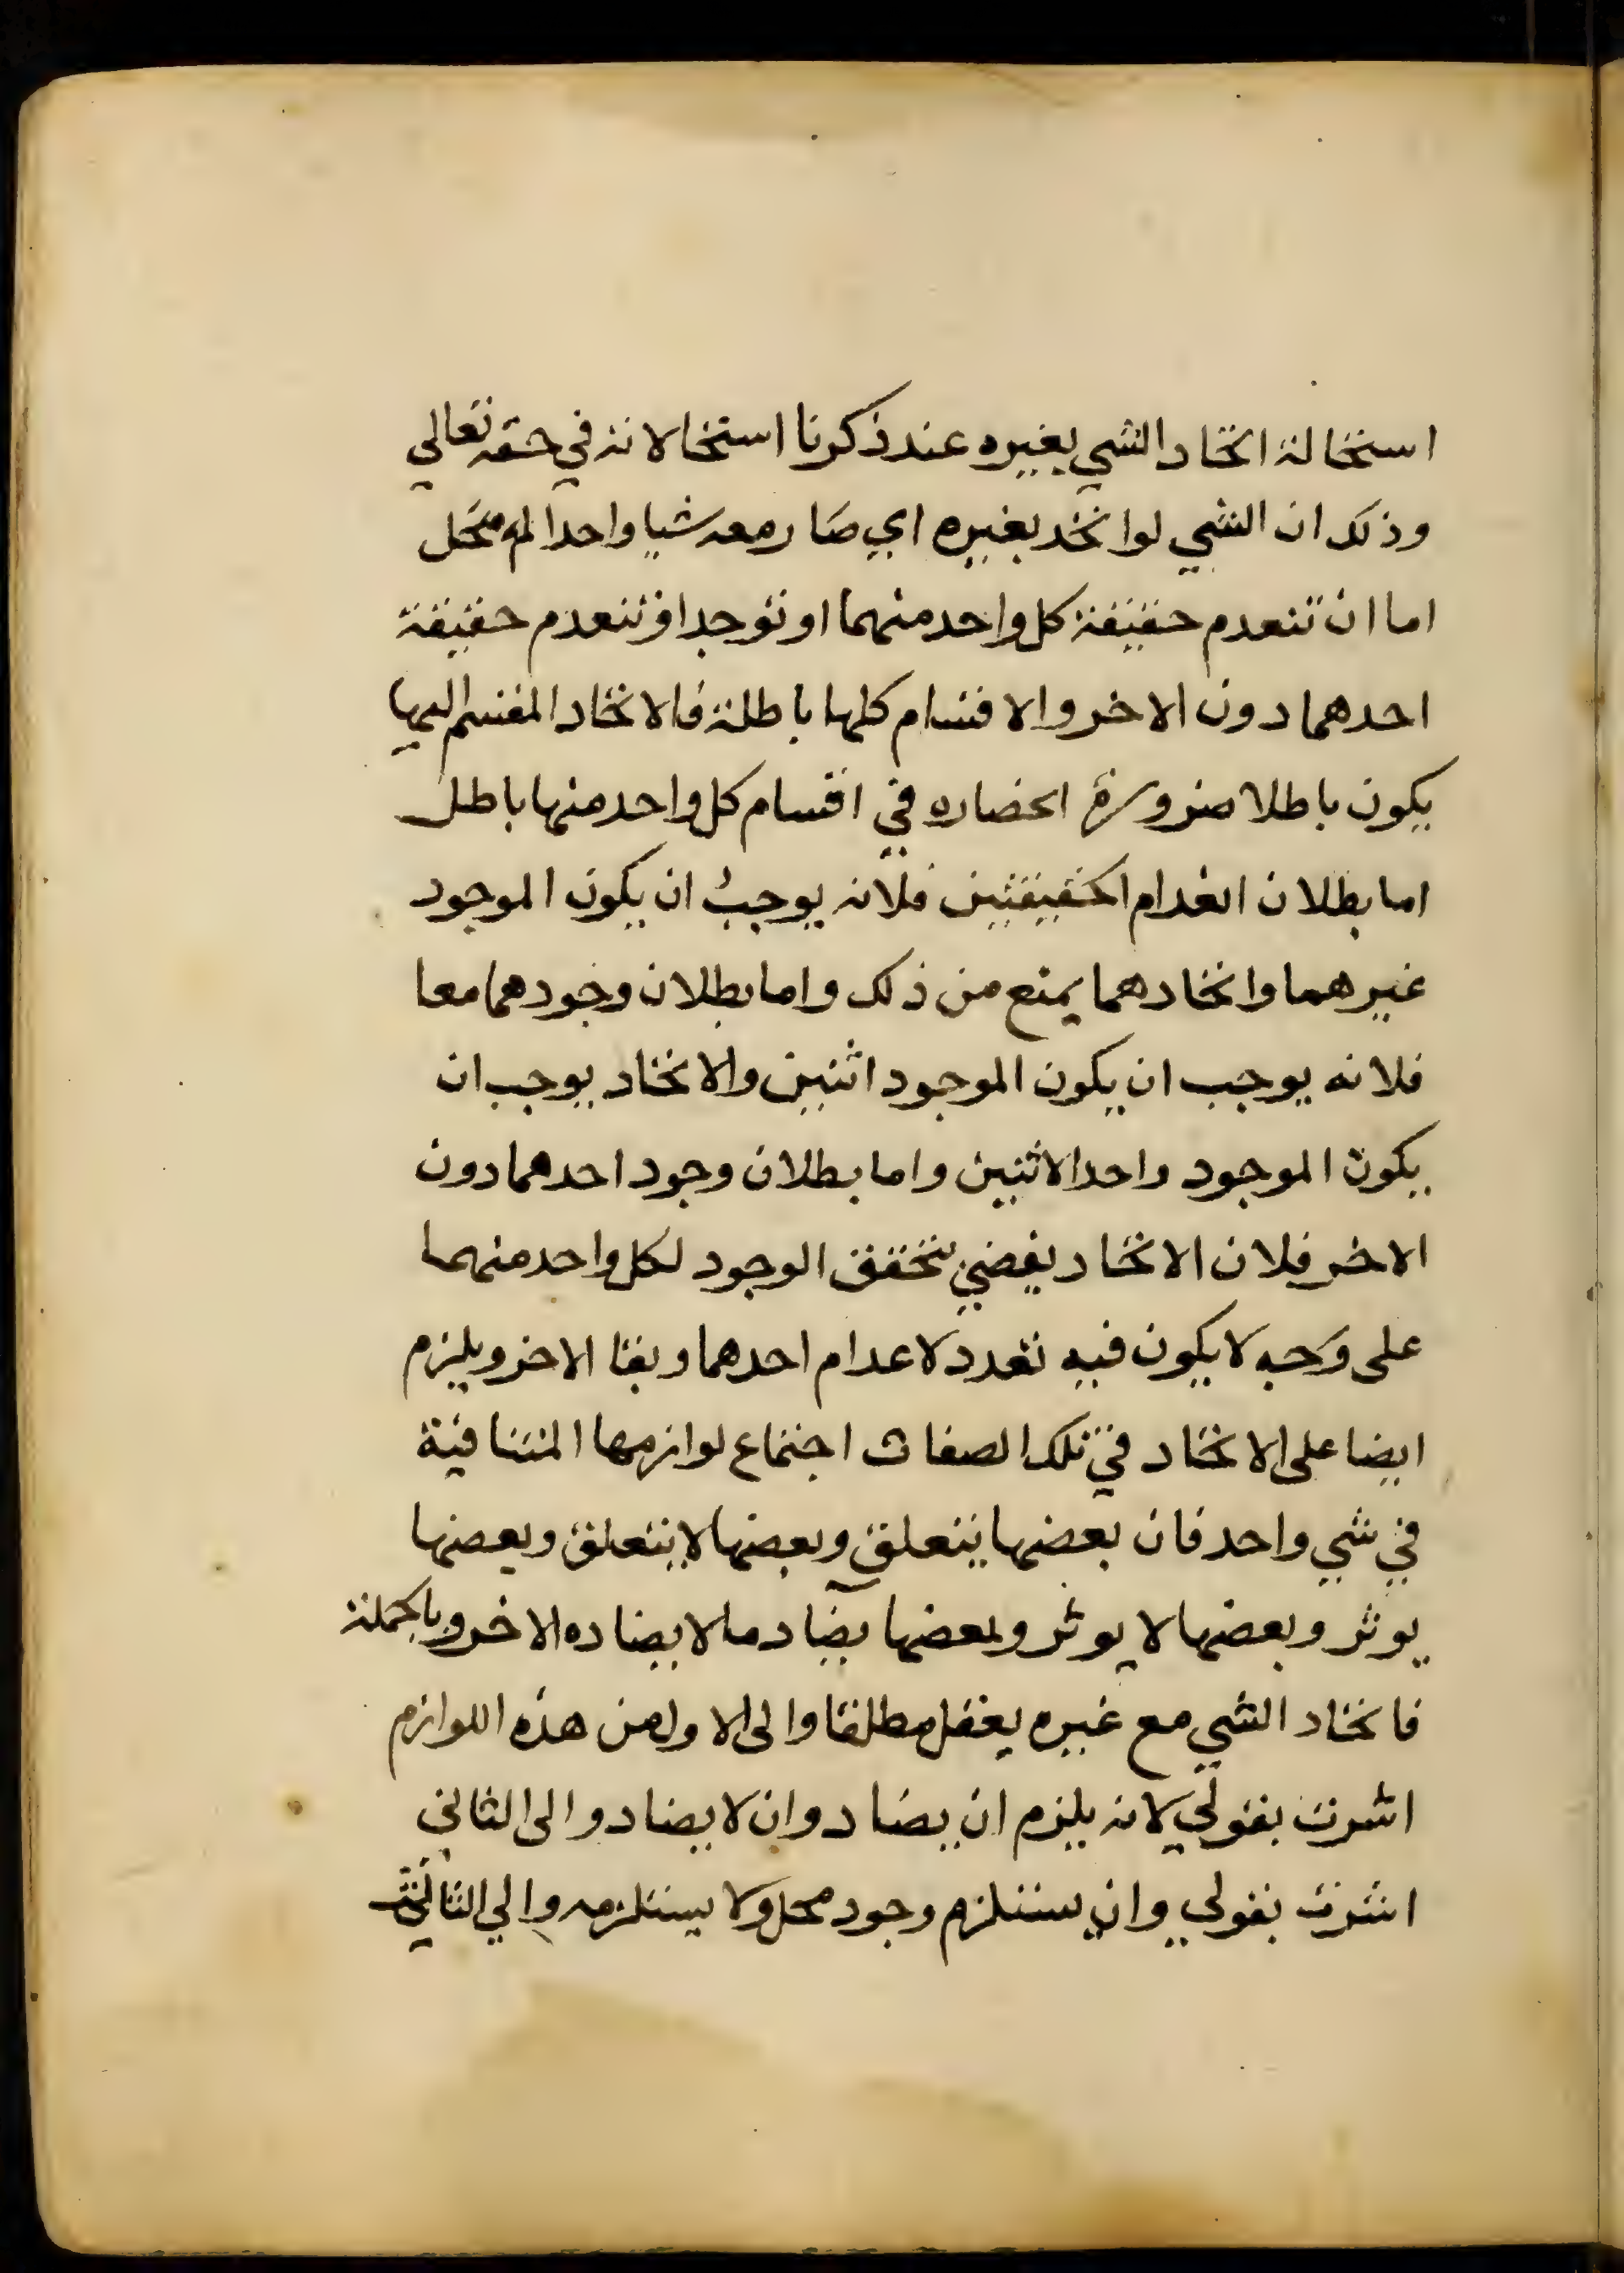 استحالة اتحاد الشي بغيره عند ذكرنا استحالاته في حقه تعالي
وذلك ان الشي لو اتحد بغيره اي صار معه شيا واحدا لم يخل
اما ان تنعدم حقيقة كل واحد منهما او توجدا او تنعدم حقيقة
احدهما دون الاخر والاقسام كلها باطلة فالاتحاد المقسم اليها
يكون باطلا ضرورة انحصاره في اقسام كل واحد منها باطل
اما بطلان انعدام الحقيقتين فلانه يوجب ان يكون الموجود
غيرهما واتحادهما يمنع من ذلك واما بطلان وجودهما معا
فلانه يوجب ان يكون الموجود اثنين والاتحاد يوجب ان
يكون الموجود واحدا لا اثنين واما بطلان وجود احدهما دون
الاخر فلان الاتحاد يقضي بتحقق الوجود لكل واحد منهما
على وجه لا يكون فيه تعدد لا عدام احدهما وبقا الاخر ويلزم
ايضا على الاتحاد في تلك الصفات اجتماع لوازمها المتنافية
في شي واحد فان بعضها يتعلق وبعضها لا يتعلق وبعضها
يوثر وبعضها لا يوثر وبعضها يضاد ما لا يضاده الاخر وبالجملة
فاتحاد الشي مع غيره يعقل مطلقا والى الاول من هذه اللوازم
اشرت بقولي لانه يلزم ان يضاد وان لا يضاد والى الثاني
اشرت بقولي وان يستلزم وجود محل ولا يستلزمه والي الثالث